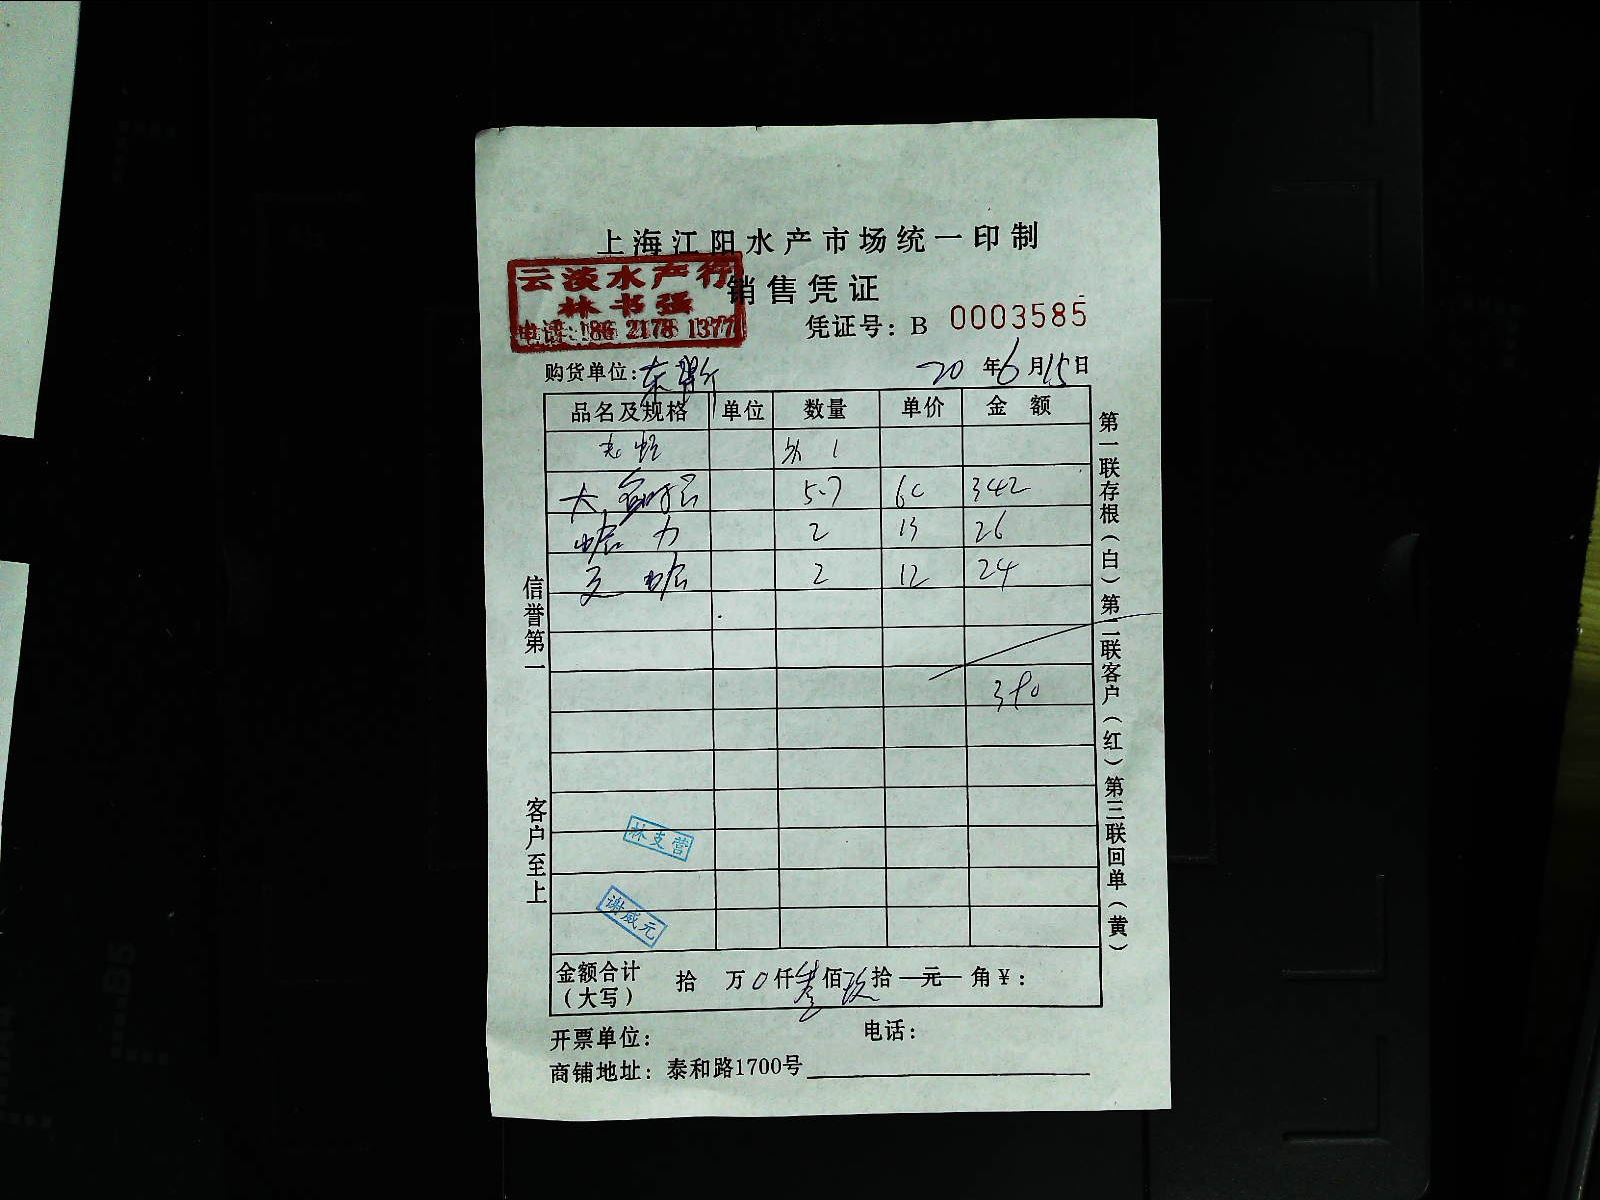 上海江阳水产市场统一印制
云淡水产行
林书强
电话:186 2178 1377
销售凭证
凭证号: B 0003585
购货单位:
20 年 6 月 15 日
品名及规格 单位 数量 单价 金 额
1
大 5.7 60 342
2 13 26
2 12 24
390
信誉第一
客户至上
第一联存根(白)第二联客户(红)第三联回单(黄)
林支营
谢威元
金额合计 拾 万 0 仟 叁 佰 玖 拾 元 角 ¥:
(大写)
开票单位: 电话:
商铺地址: 泰和路1700号